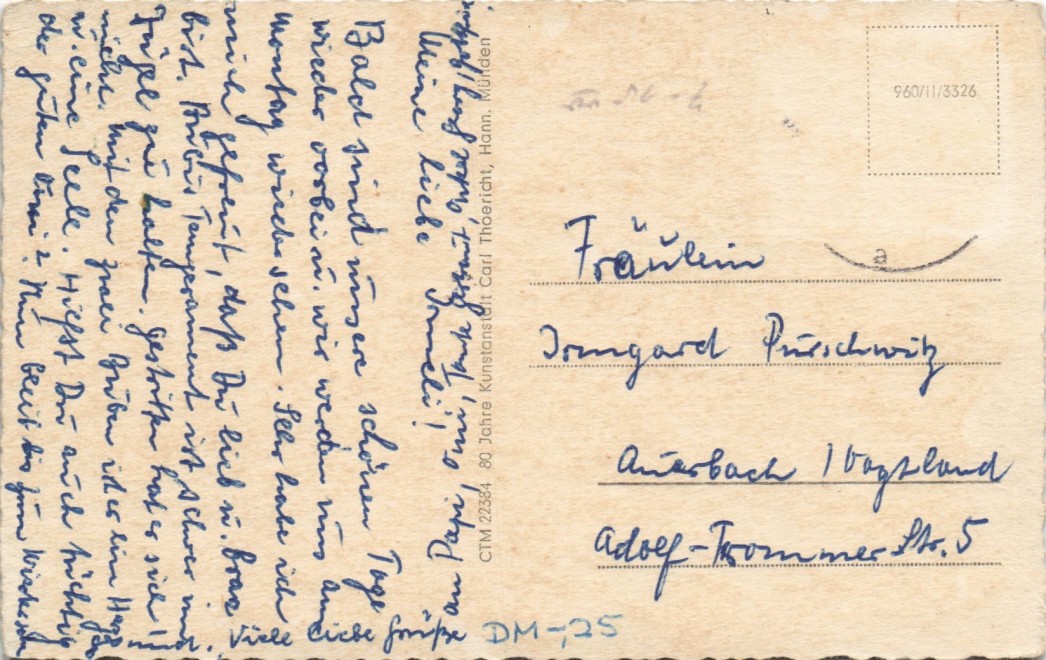 Meine liebe Irmeli!
Bald sind unsere schönen Tage
wieder vorbei u. wir werden uns am
Montag wiedersehen. Sehr habe ich
mich gefreut, daß Du lieb u. brav
bist. Bubis Temperament ist schwer im
Zügel zu halten. gestritten hat er sich
nicht. Mit den zwei Buben ist er ein Herz
u. eine Seele. Hilfst Du auch tüchtig
der guten Omi? Nun bleib bis zum Wiedersehen
Viele liebe Grüße
CTM 22384 80 Jahre Kunstanstalt Carl Thoericht, Hann. Münden
960/11/3326
a
Fräulein
Irmgard Purschwitz
Auerbach /Vogtland
Adolf-Trommer-Str. 5
DM -,25